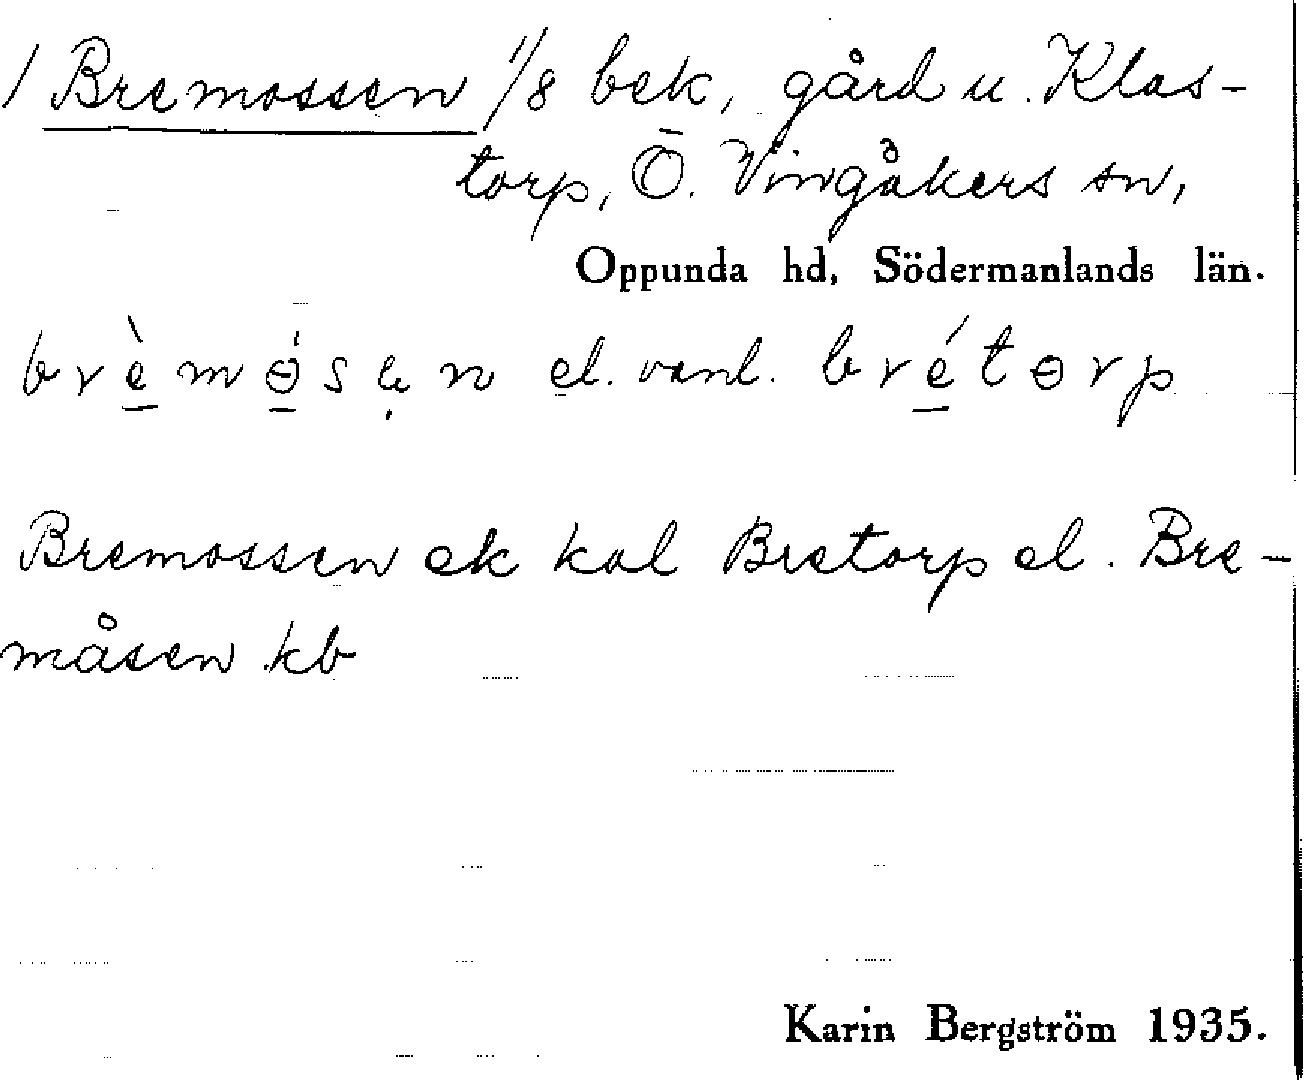 / Bremossen 1/8 bek, gård u. Klas-
torp, Ö. Vingåkers sn,
Oppunda hd, Södermanlands län.
brè̱mɵ̱́sen el. vanl. bré̱tɵrp
Bremossen ek kal Bretorp el. Bre-
måsen kb
Karin Bergström 1935.